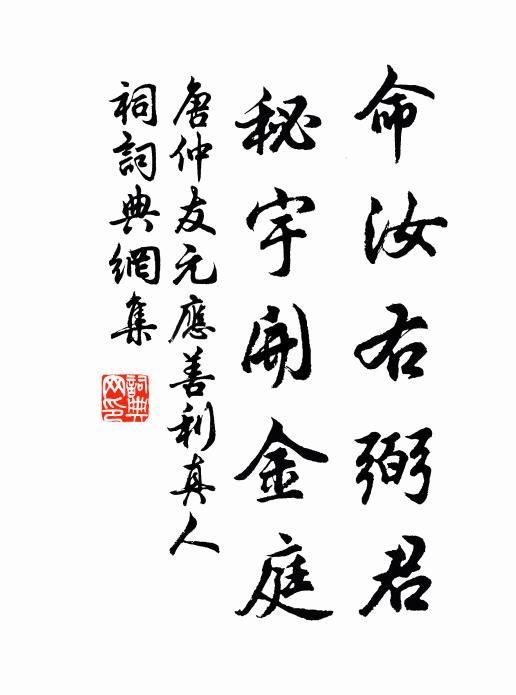 命汝右弼君
秘宇開金庭
唐仲友元應善利真人
祠詞典網集
詞典网印